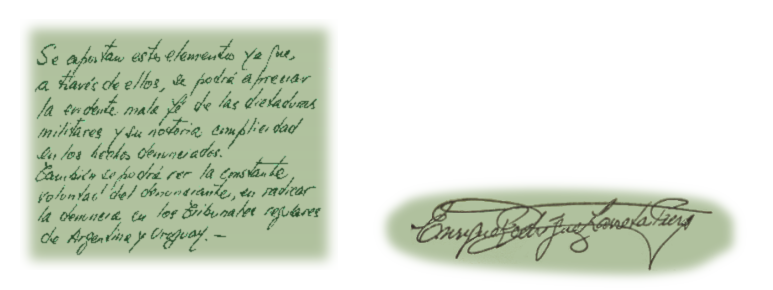 Se aportan estos elementos ya que,
a través de ellos, se podrá apreciar
la evidente mala fé de las dictaduras
militares y su notoria complicidad
en los hechos denunciados.
También se podrá ver la constante
voluntad del denunciante, en radicar
la denuncia en los tribunales regulares
de Argentina y Uruguay.—
Enrique Rodríguez Larreta Piera